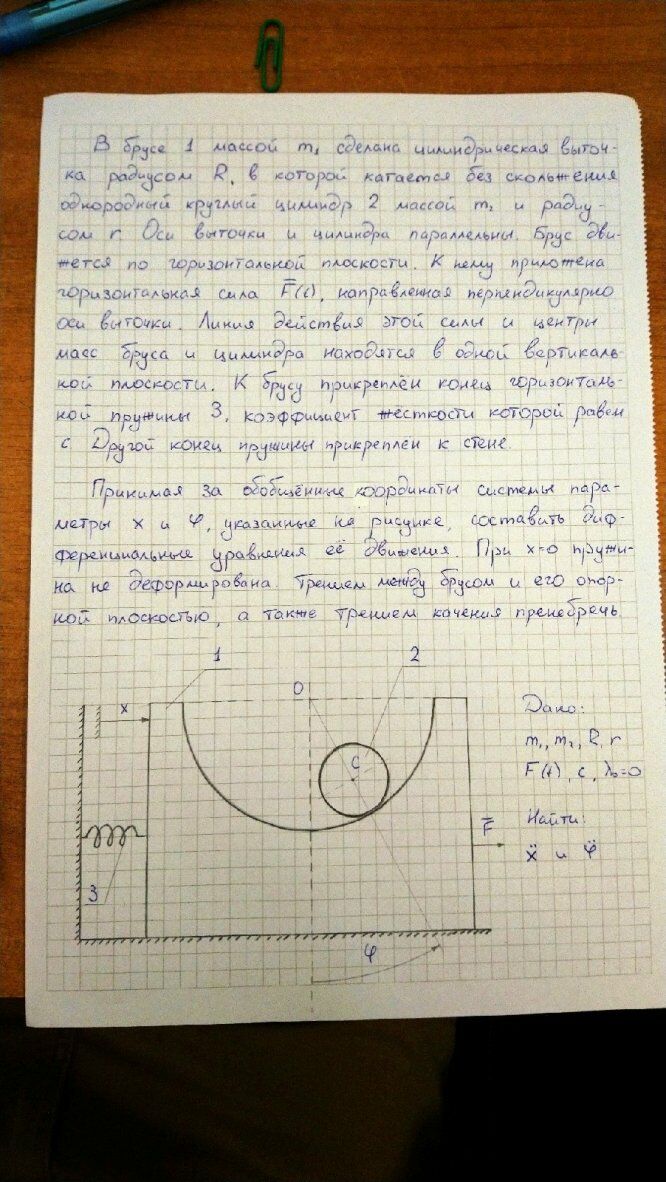 В брусе 1 массой m₁ сделана цилиндрическая выточ-
ка радиусом R, в которой катается без скольжения
однородный круглый цилиндр 2 массой m₂ и радиу-
сом r. Оси выточки и цилиндра параллельны. Брус дви-
жется по горизонтальной плоскости. К нему приложена
горизонтальная сила F̄(t), направленная перпендикулярно
оси выточки. Линия действия этой силы и центры
масс бруса и цилиндра находятся в одной вертикаль-
ной плоскости. К брусу прикреплён конец горизонталь-
ной пружины 3, коэффициент жесткости которой равен
c. Другой конец пружины прикреплён к стене.
Принимая за обобщённые координаты системы пара-
метры x и φ, указанные на рисунке, составить диф-
ференциальные уравнения её движения. При x=0 пружи-
на не деформирована. Трением между брусом и его опор-
ной плоскостью, а также трением качения пренебречь.
1
2
O
x
C
3
F̄
φ
Дано:
m₁, m₂, R, r
F(t), c, λ₀=0
Найти:
ẍ и φ̈